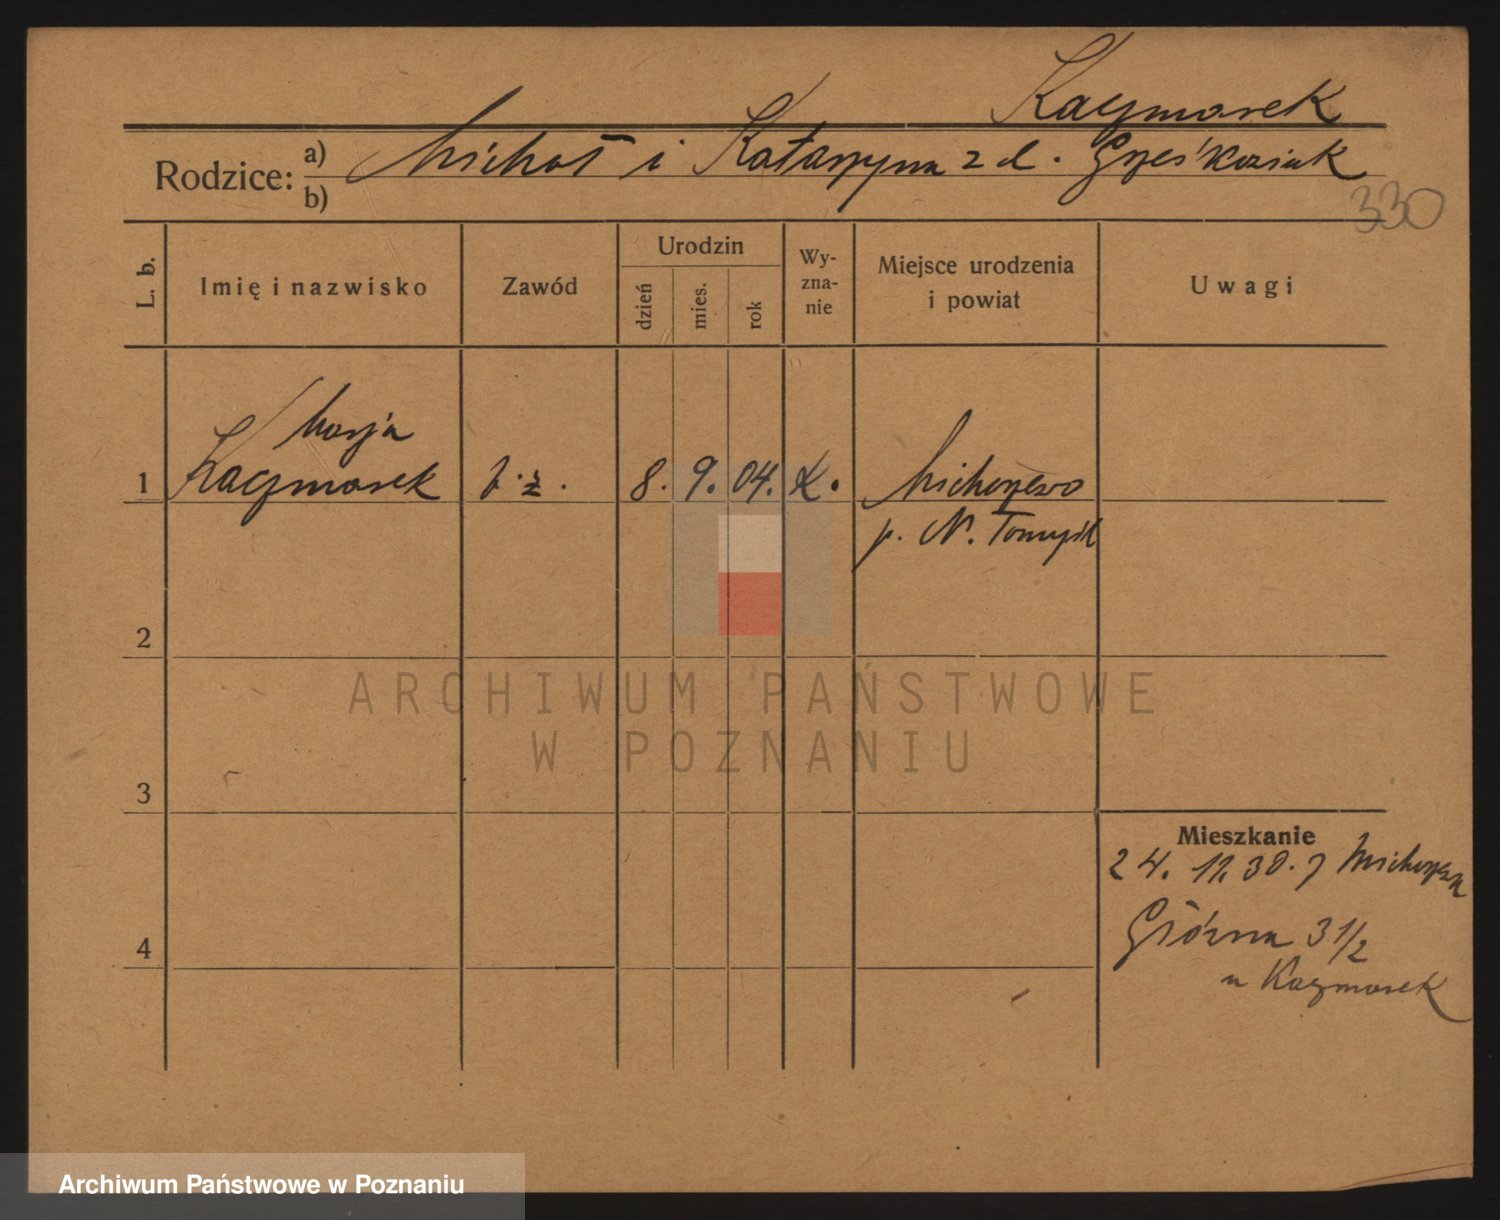 Kaczmarek
Rodzice: a) Michał i Katarzyna z d. Grześkowiak
b)
330
L. b.
Imię i nazwisko
Zawód
Urodzin
dzień
mies.
rok
Wy-
zna-
nie
Miejsce urodzenia
i powiat
Uwagi
Marja
1 Kaczmarek b.z. 8. 9. 04. k. Michorzewo
p. N. Tomyśl
2
3
4
Mieszkanie
24. 11. 30. z Michorzewa
Górna 3 1/2
u Kaczmarek
ARCHIWUM PAŃSTWOWE
W POZNANIU
Archiwum Państwowe w Poznaniu